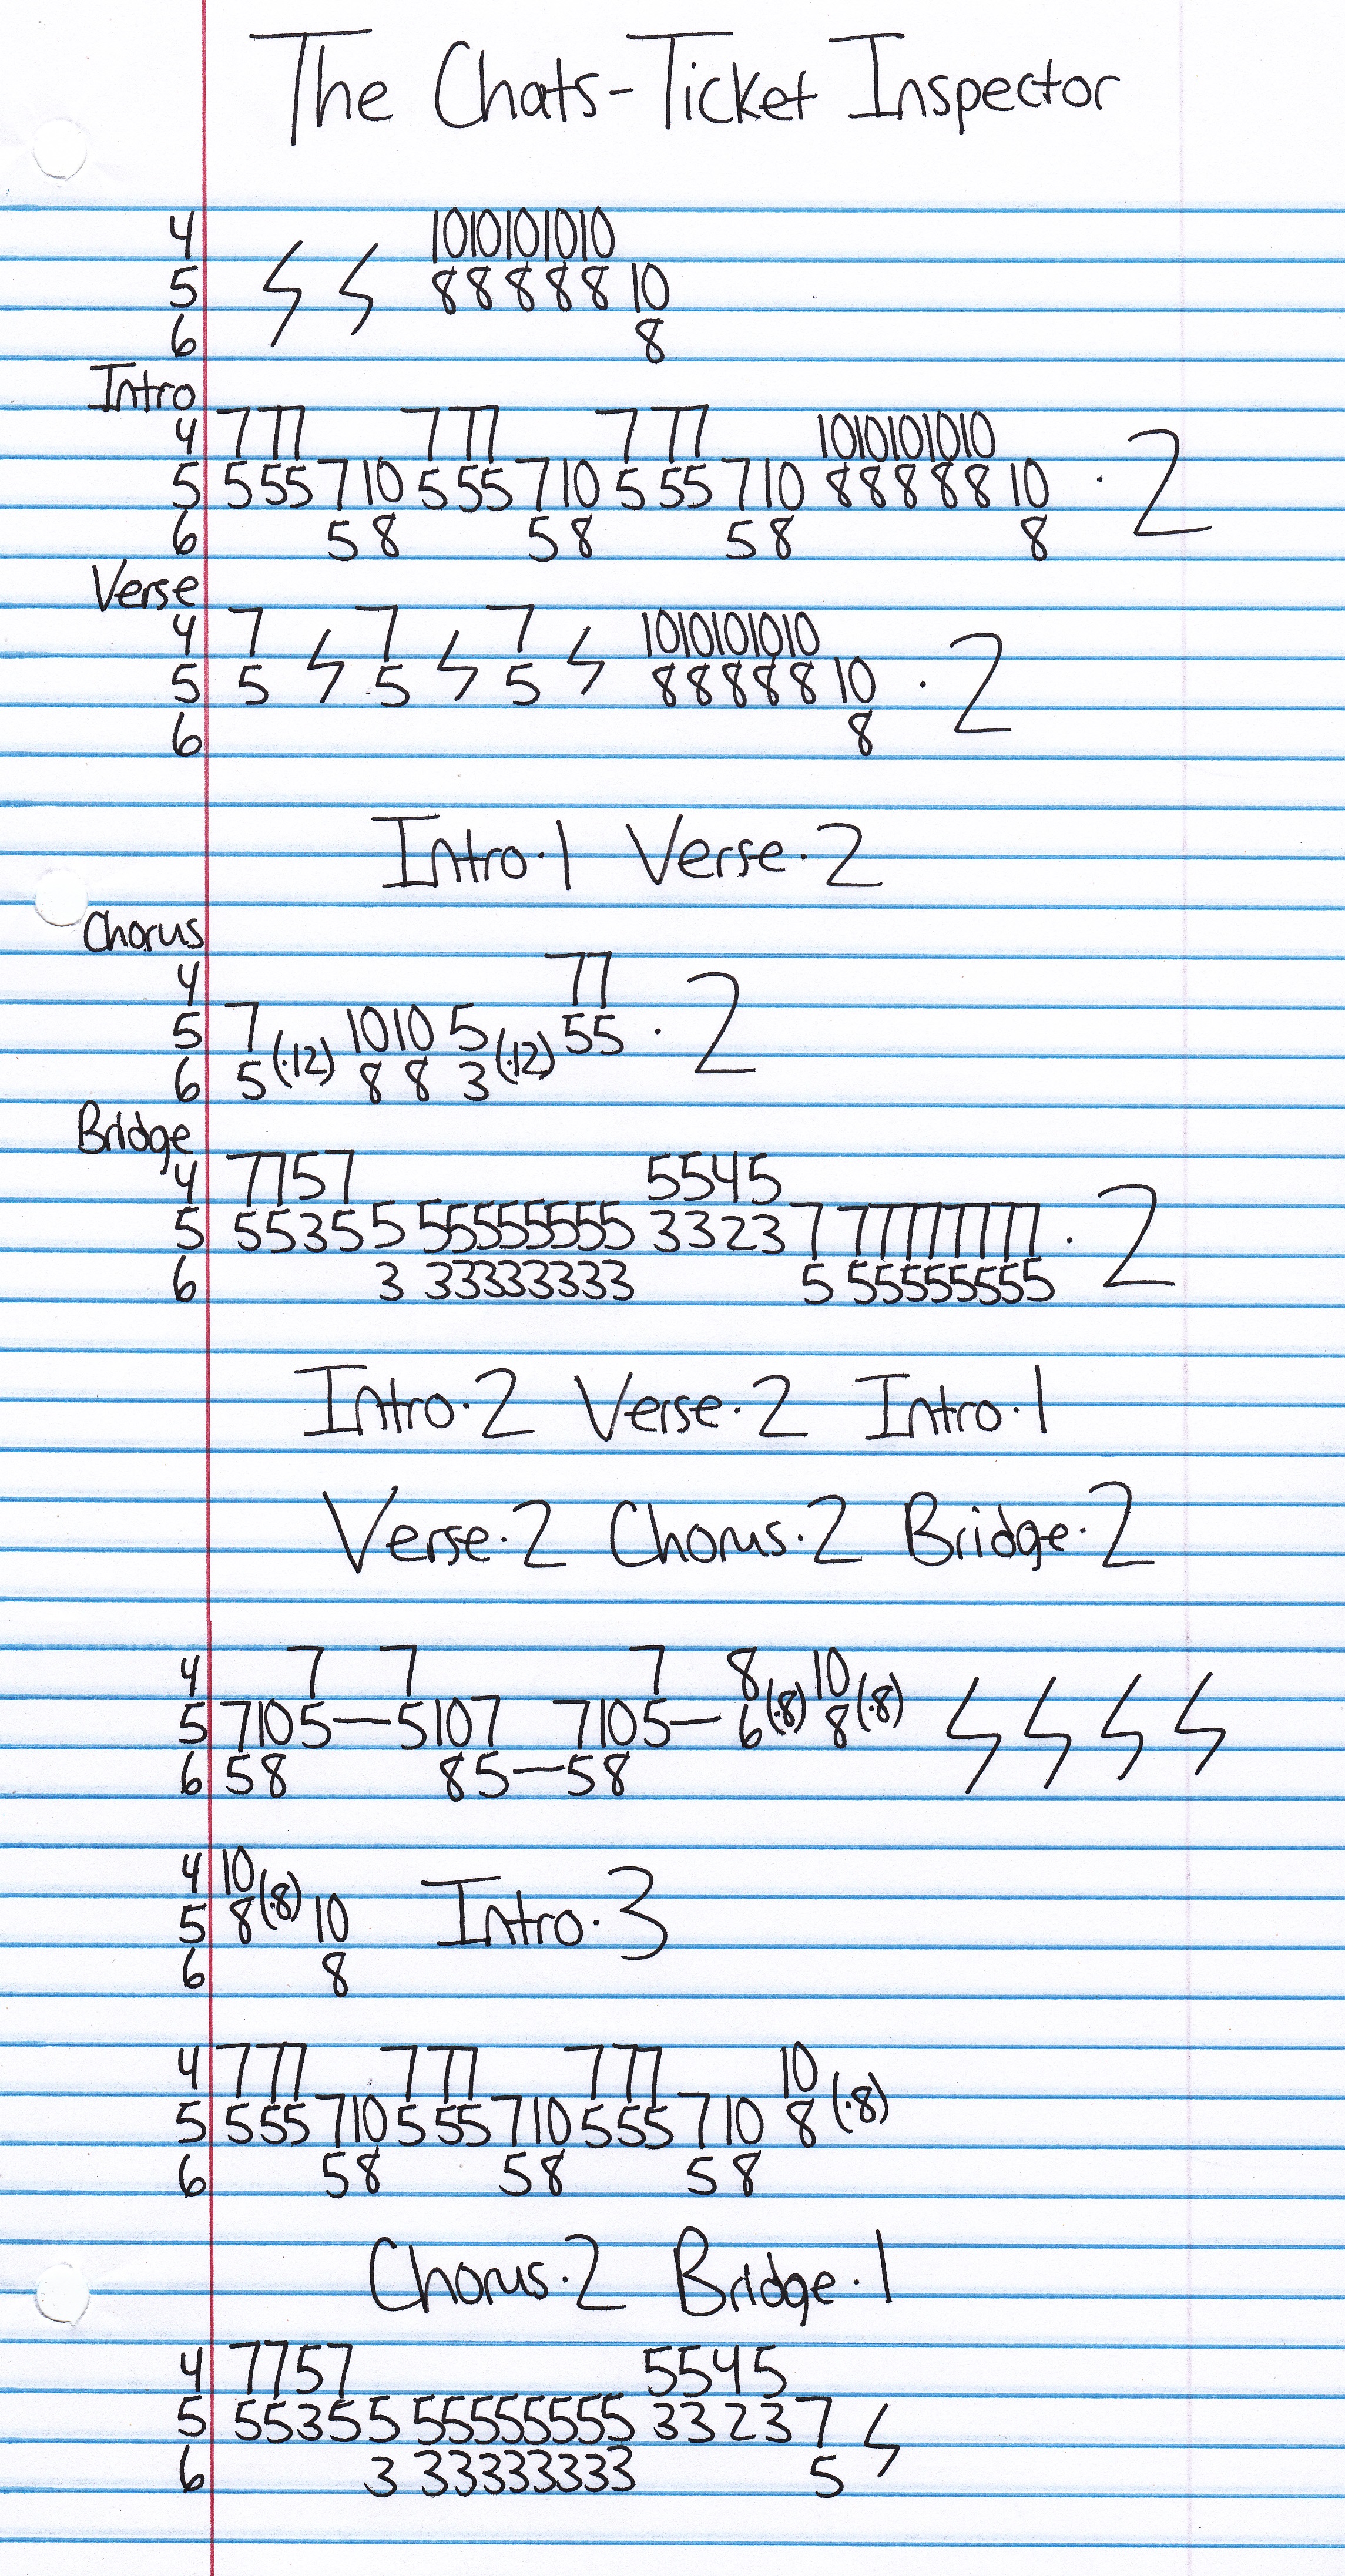 The Chats-Ticket Inspector
4 10 10 10 10 10
5 8 8 8 8 8 10
6 8
Intro
4 7 7 7 7 7 7 7 7 7 10 10 10 10 10
5 5 5 5 7 10 5 5 5 7 10 5 5 5 7 10 8 8 8 8 8 10 · 2
6 5 8 5 8 5 8 8
Verse
4 7 7 7 10 10 10 10 10
5 5 5 5 8 8 8 8 8 10 · 2
6 8
Intro·1 Verse·2
Chorus
4 7 7
5 7 (·12) 10 10 5 (·12) 5 5 · 2
6 5 8 8 3
Bridge
4 7 7 5 7 5 5 4 5
5 5 5 3 5 5 5 5 5 5 5 5 5 5 3 3 2 3 7 7 7 7 7 7 7 7 7 · 2
6 3 3 3 3 3 3 3 3 3 5 5 5 5 5 5 5 5 5
Intro·2 Verse·2 Intro·1
Verse·2 Chorus·2 Bridge·2
4 7 7 7 8 10
5 7 10 5 — 5 10 7 7 10 5 — 6 (·8) 8 (·8)
6 5 8 8 5 — 5 8
4 10
5 8 (·8) 10 Intro·3
6 8
4 7 7 7 7 7 7 7 7 7 10
5 5 5 5 7 10 5 5 5 7 10 5 5 5 7 10 8 (·8)
6 5 8 5 8 5 8
Chorus·2 Bridge·1
4 7 7 5 7 5 5 4 5
5 5 5 3 5 5 5 5 5 5 5 5 5 5 3 3 2 3 7
6 3 3 3 3 3 3 3 3 3 5